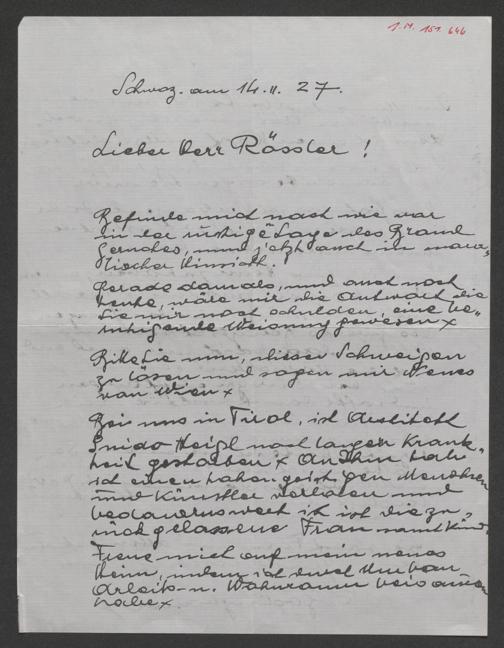 I.N. 151.646
Schwaz. am 14.II. 27.
Lieber Herr Rössler!
Befinde mich nach wie vor
in der Lage des Brand
Geruches, und jetzt auch in mora„
lischer Hinsicht.
Gerade damals, und auch noch
heute, wäre mir die Antwort die
Sie mir noch schulden, eine be„
ruhigende Weisung gewesen x
Bitte Sie nun, dieses Schweigen
zu lösen und sagen mir Neues
von Wien x
Bei uns in Tirol, ist Architekt
Guido Heigl nach langer Krank„
heit gestorben x An Ihm habe
ich einen hohen geistigen Menschen
und Künstler verloren und
bedauernswert ist die zu„
rückgelassene Frau samt Kind.
Freue mich auf mein neues
Heim, indem ich durch Umbau
Arbeits- u. Wohnraum
habe x